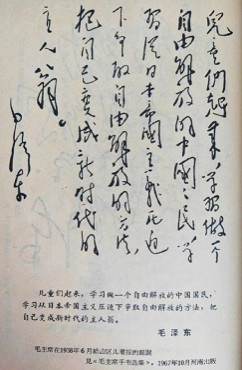 兒童們起来學習做一个
自由解放的中國々民學
習從日本帝國主義壓迫
下爭取自由解放的方法
把自己變成新时代的
主人翁。
毛澤东
儿童们起来，学习做一个自由解放的中国国民，
学习从日本帝国主义压迫下争取自由解放的方法，把
自己变成新时代的主人翁。
毛泽东
毛主席在1938年6月给边区儿童报的题词
见《毛主席手书选集》.1967年10月河南出版